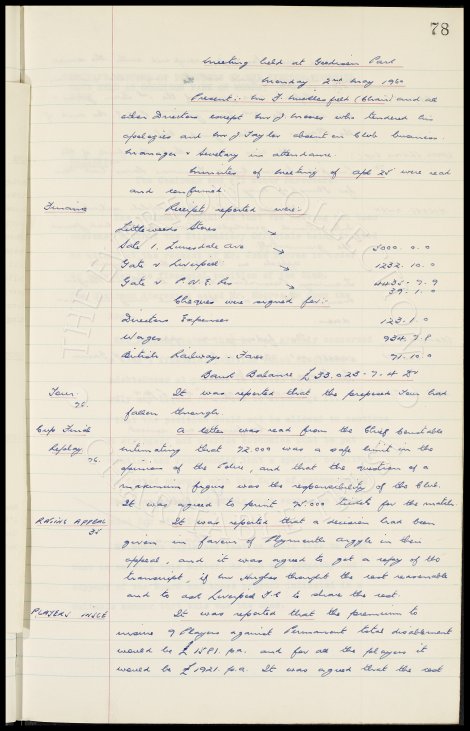 78
Meeting held at Goodison Park
Monday 2nd May 1960
Present:- Mr F. Micklesfield (Chair) and all
other Directors except Mr J Moores who tendered his
apologies and Mr J Taylor absent on Club business.
Manager & Secretary in attendance
Minutes of meeting of Apl 25 were read
and confirmed.
Finance
Receipts reported were:-
Littlewoods Stores
Sale 1, Lunesdale Ave 3000. 0. 0
Gate v Liverpool 1232. 10. 0
Gate v P.N.E. Res 4435. 7. 9
39. 1. 0
Cheques were signed for:-
Directors Expenses 123. 1. 0
Wages 934. 7. 8
British Railways - Fares 71. 10. 0
Bank Balance £33.023. 7. 4
Tour
It was reported that the proposed Tour had
fallen through.
Cup Final
Replay
76.
A letter was read from the Chief Constable
intimating that 72.000 was a safe limit in the
opinion of the Police, and that the question of a
maximum figure was the responsibility of the Club.
It was agreed to print 75.000 tickets for the match.
RATING APPEAL
It was reported that a decision had been
given in favour of Plymouth Argyle in their
appeal, and it was agreed to get a copy of the
transcript, if Mr Hughes thought the cost reasonable
and to ask Liverpool F.C to share the cost.
PLAYERS INSCE
It was reported that the premium to
insure 9 Players against Permanent total disablement
would be £1581. p.a. and for all the players it
would be £1921. p.a. It was agreed that the cost